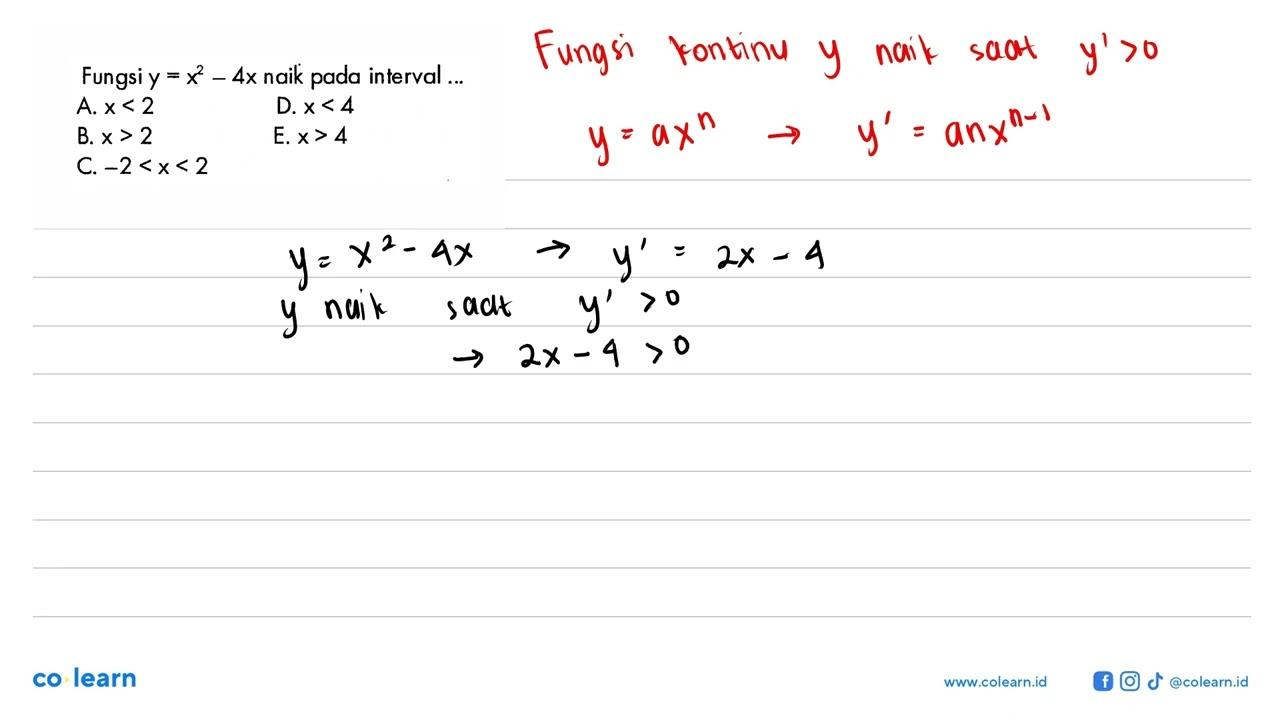 Fungsi y = x² – 4x naik pada interval ...
A. x < 2 D. x < 4
B. x > 2 E. x > 4
C. –2 < x < 2
Fungsi kontinu y naik saat y' > 0
y = axⁿ → y' = anxⁿ⁻¹
y = x² - 4x → y' = 2x - 4
y naik saat y' > 0
→ 2x - 4 > 0
co learn
www.colearn.id @colearn.id